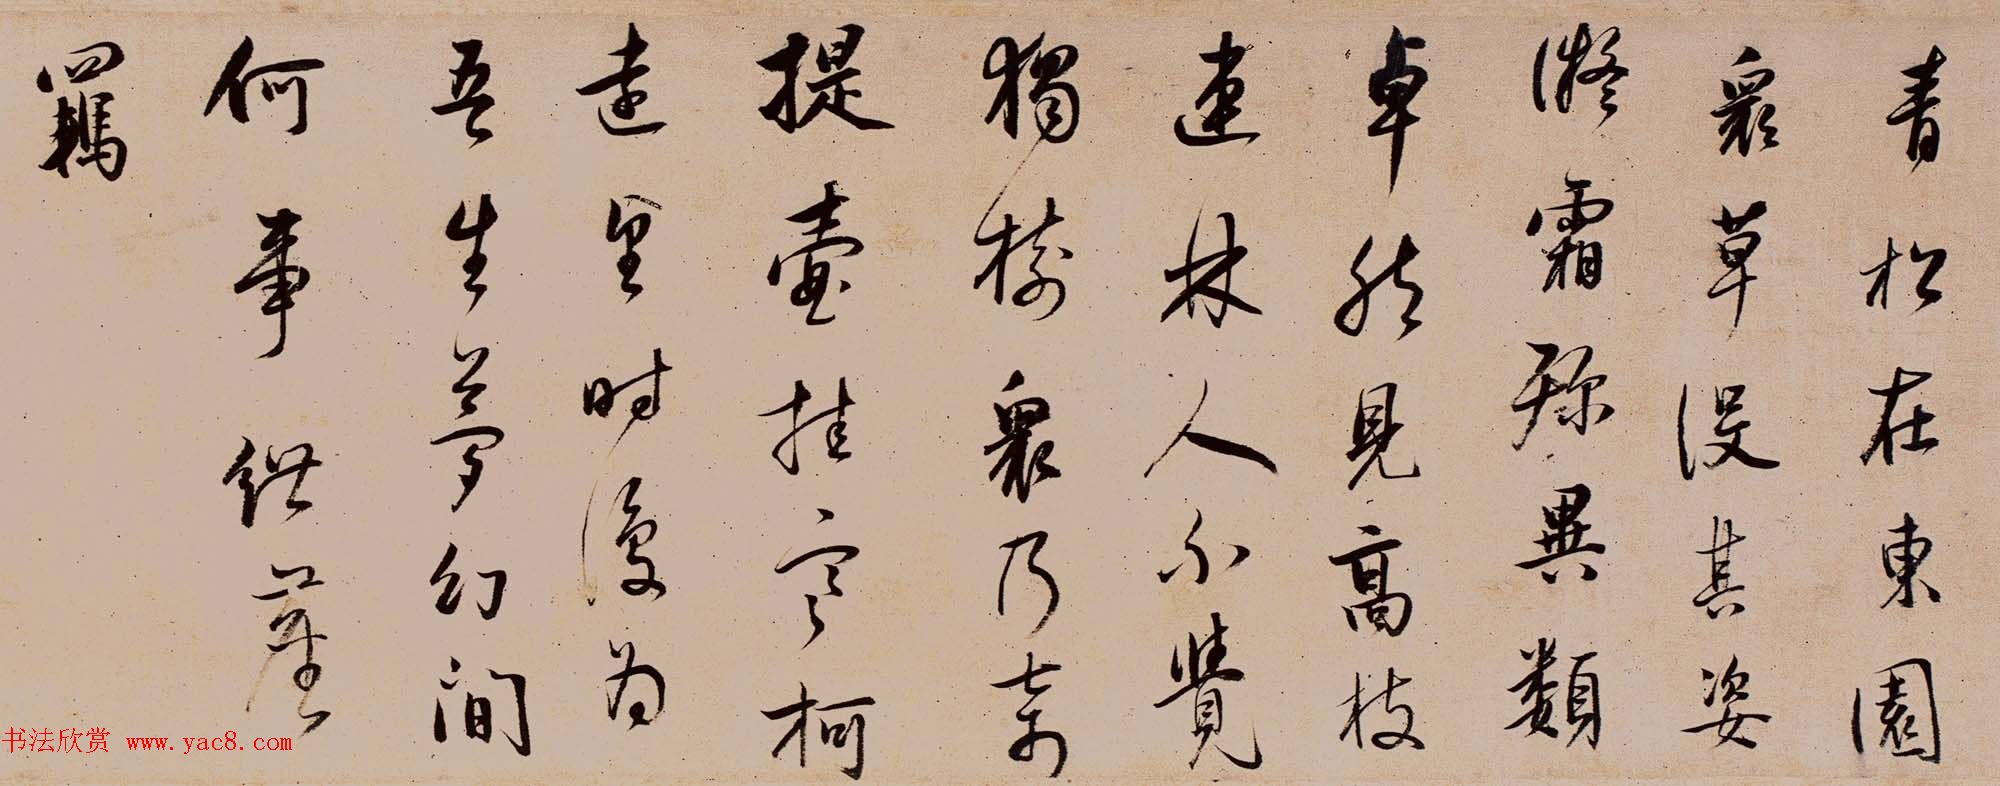 青松在東園
眾草沒其姿
凝霜殄異類
卓然見高枝
連林人不覺
獨樹眾乃奇
提壺挂寒柯
遠望時復為
吾生夢幻間
何事紲塵
羈
书法欣赏 www.yac8.com